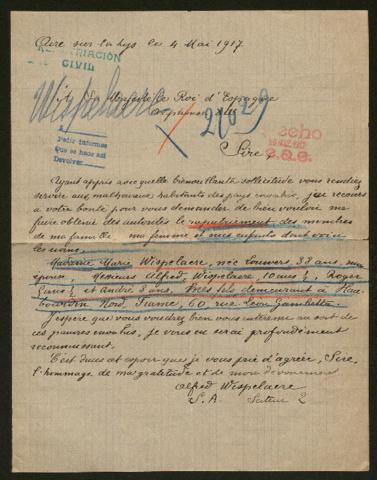 Aire sur la Lys le 4 Mai 1917.
REPATRIACIÓN
CIVIL
Wispelaere
A Sa Majesté le Roi d'Espagne
Alphonse XIII
21029
Pedir informes
Que se hace así
Devolver
Hecho
S.E.Q.
Sire,
Ayant appris avec quelle bienveillante sollicitude vous rendez
service aux malheureux habitants des pays envahis, j'ai recours
à votre bonté pour vous demander de bien vouloir me
faire obtenir des autorités le rapatriement des membres
de ma famille ma femme et mes enfants dont voici
les noms.
Madame Marie Wispelaere, née Louvers, 33 ans, mon
épouse, Messieurs Alfred Wispelaere, 10 ans ½, Roger
et André 3 ans, mes fils demeurant à Hau-
bourdin Nord, France, 60 rue Léon Gambetta
J'espère que vous voudrez bien vous intéresser au sort de
ces pauvres exilés, je vous en serai profondément
reconnaissant.
C'est dans cet espoir que je vous prie d'agréer, Sire,
l'hommage de ma gratitude et de mon dévouement
Alfred Wispelaere
S. A. Secteur 2